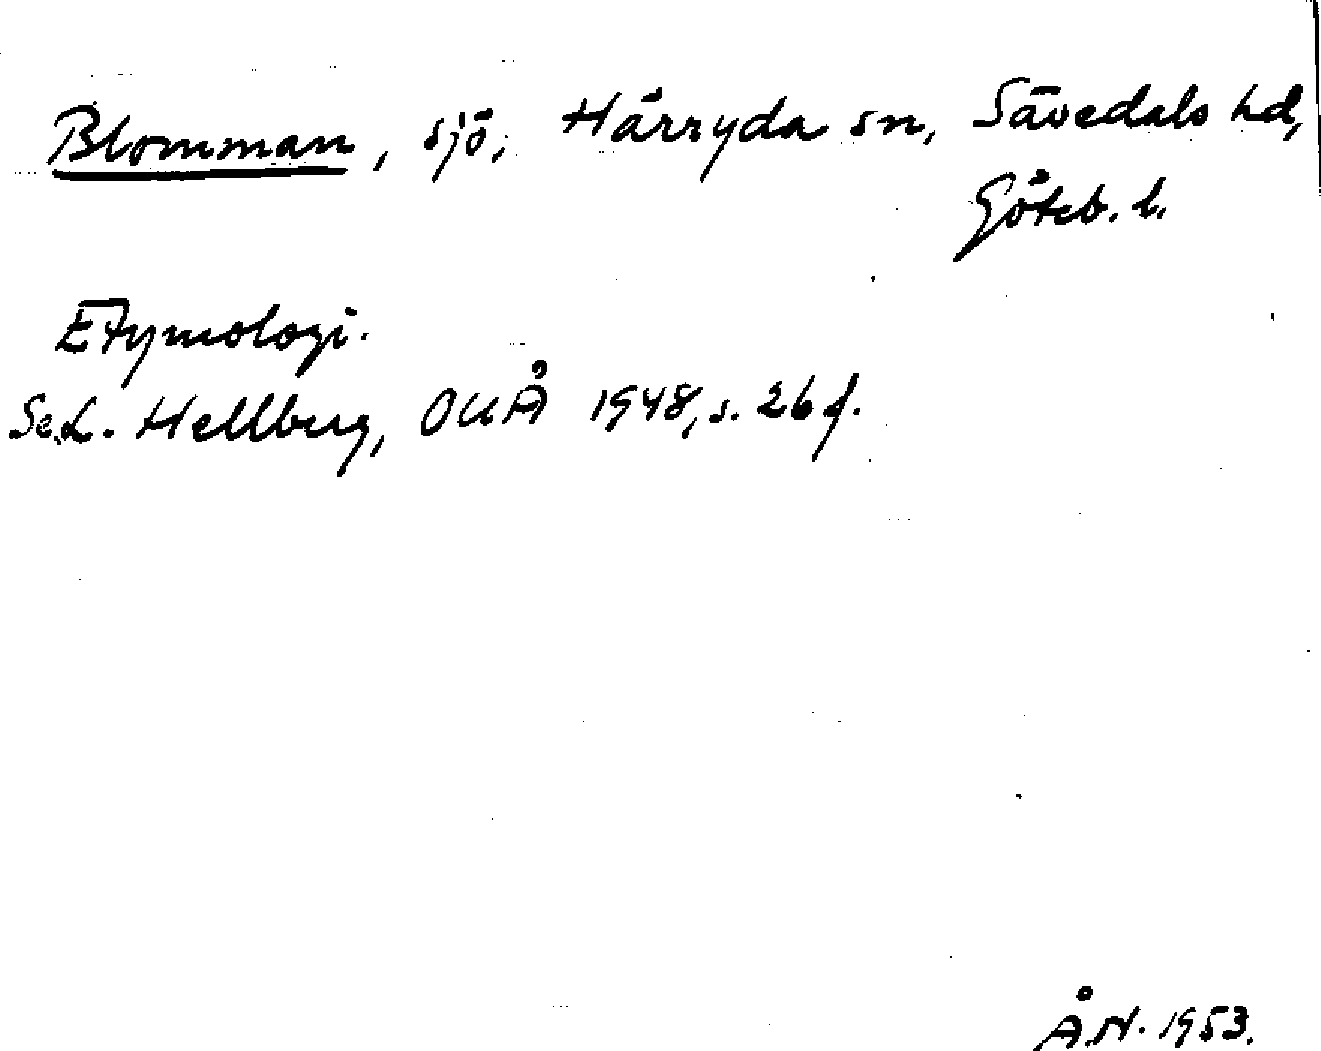 Blomman, sjö, Härryda sn, Sävedals hd,
Göteb. l.
Etymologi.
Se L. Hellberg, OUÅ 1948, s. 26 f.
Å.N. 1953.